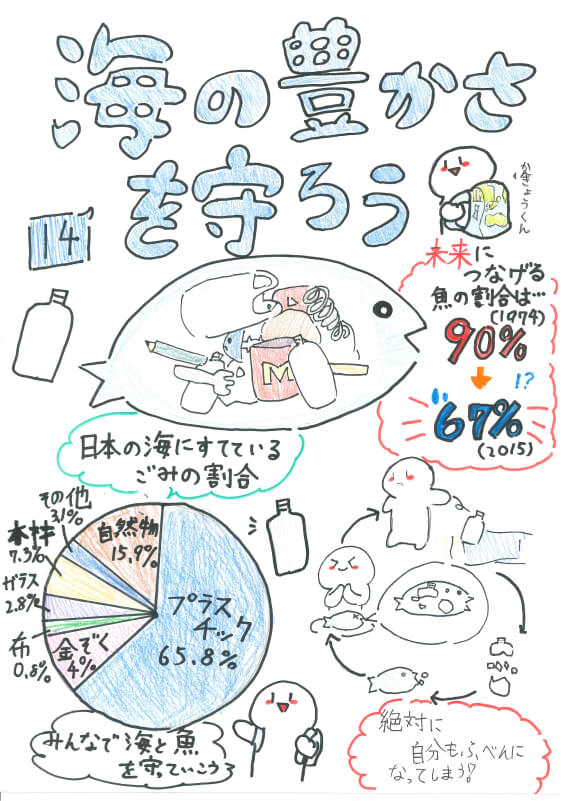 海の豊かさ
を守ろう
かきょうくん
14
未来に
つなげる
魚の割合は…
(1974)
90%
!?
67%
(2015)
M
日本の海にすてている
ごみの割合
その他
3.1%
自然物
15.9%
木材
7.3%
ガラス
2.8%
布
0.8%
金ぞく
4%
プラス
チック
65.8%
みんなで海と魚
を守っていこう
絶対に
自分もふべんに
なってしまう?